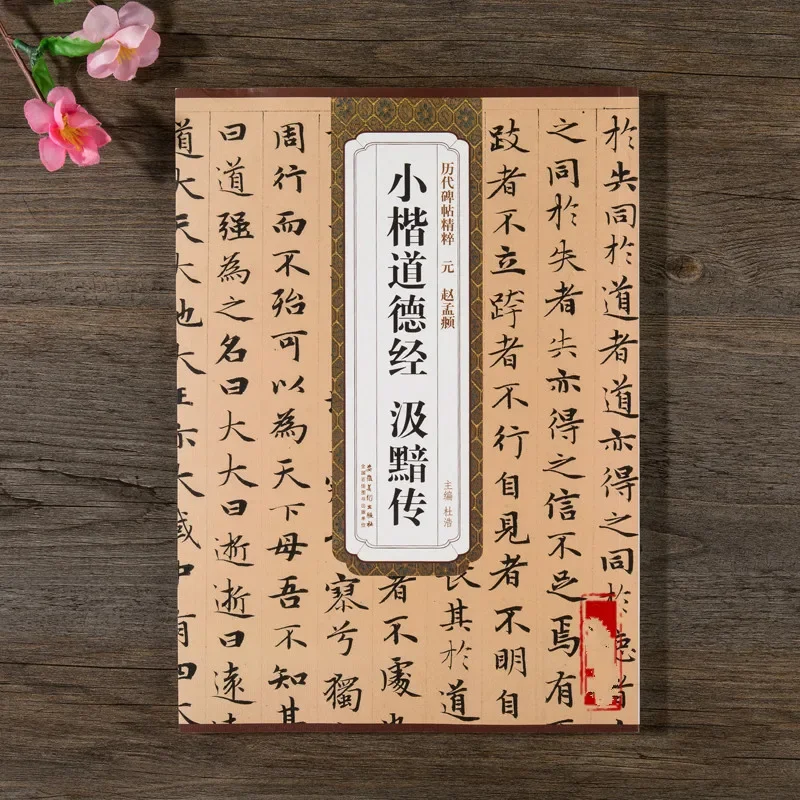 於失同於道者道亦得之同於德者
之同於失者失亦得之信不足焉有
跂者不立跨者不行自見者不明自
历代碑帖精粹 元 赵孟頫
小楷道德经 汲黯传
主编 杜浩
安徽美术出版社
全国百佳图书出版单位
長其於道
者不處
寂兮獨
周行而不殆可以為天下母吾不知其
曰道强為之名曰大大曰逝逝曰遠
道大天大地大王亦大域中有四大